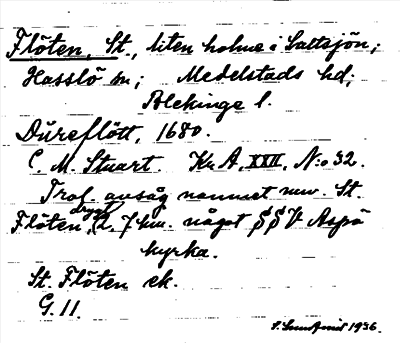 Flöten, St., liten holme i Saltsjön;
Hasslö sn; Medelstads hd;
Blekinge l.
Düreflött, 1680.
C. M. Stuart. Kr A, XXII, N:o 32.
Prof. ansåg namnet nuv. St.
Flöten, drygt 7 km. något SSV Aspö
kyrka.
St. Flöten ek.
G. 11.
1936.